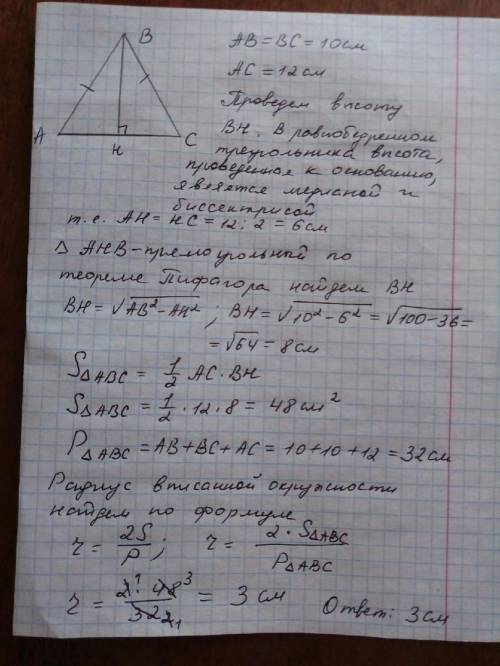 B
A
H
C
AB = BC = 10 см
AC = 12 см
Проведем высоту
BH. В равнобедренном
треугольника высота,
проведенная к основанию,
является медианой и
биссектрисой
т.е. AH = HC = 12 : 2 = 6 см
Δ AHB - прямоугольный по
теореме Пифагора найдем BH
BH = √AB² - AH² ; BH = √10² - 6² = √100 - 36 =
= √64 = 8 см
S△ABC = 1/2 AC · BH
S△ABC = 1/2 · 12 · 8 = 48 см²
P△ABC = AB + BC + AC = 10 + 10 + 12 = 32 см
Радиус вписанной окружности
найдем по формуле
r = 2S/P ; r = 2 · S△ABC / P△ABC
r = 2¹ · 48³ / 32 2 1 = 3 см
Ответ: 3 см